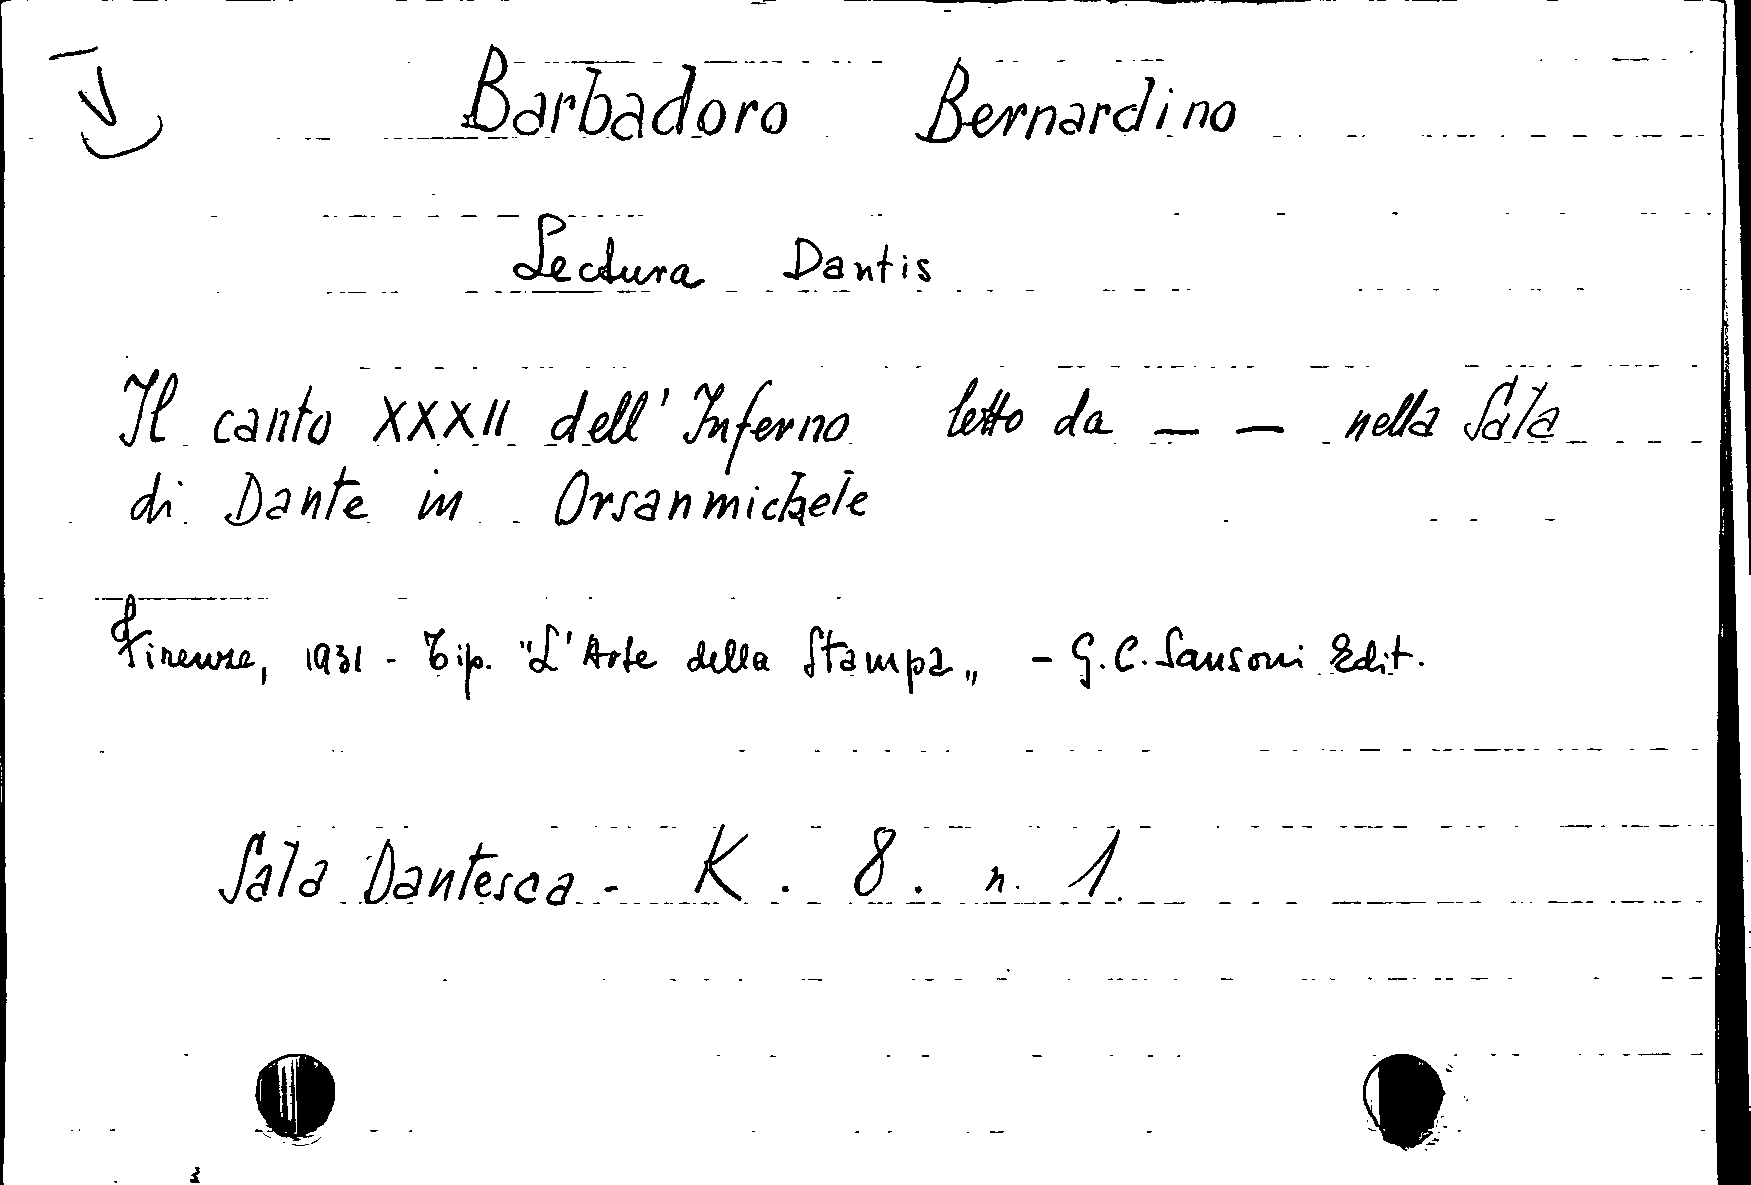 Barbadoro Bernardino
Lectura Dantis
Il canto XXXII dell' Inferno letto da — — nella Sala
di Dante in Orsanmichele
Firenze, 1931 - Tip. "L'Arte della Stampa„ - G. C. Sansoni Edit.
Sala Dantesca - K. 8. n. 1